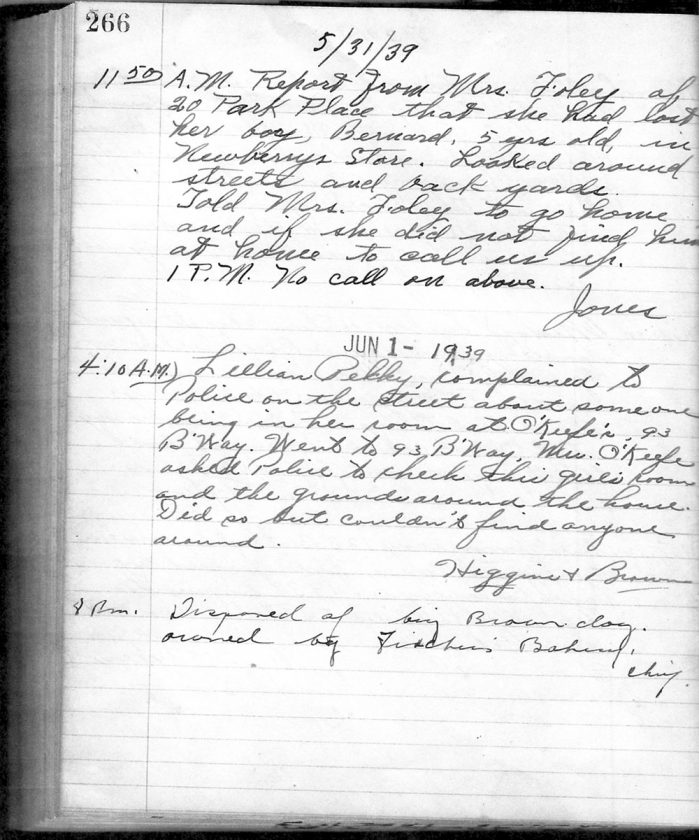 266
5/31/39
11 50 A.M. Report from Mrs. Foley of
20 Park Place that she had lost
her boy, Bernard, 5 yrs old, in
Newberrys Store. Looked around
streets and back yards.
Told Mrs. Foley to go home
and if she did not find him
at home to call us up.
1 P.M. No call on above.
Jones
JUN 1 - 1939
4:10 A.M.) Lillian , complained to
Police on the street about someone
being in her room at O'Keefe's, 93
B'Way. Went to 93 B'Way, Mrs. O'Keefe
asked Police to check this girls room
and the grounds around the house.
Did so but couldn't find anyone
around.
Higgins & Brown
8 Pm. Disposed of big Brown dog.
owned by Fischer's Bakery.